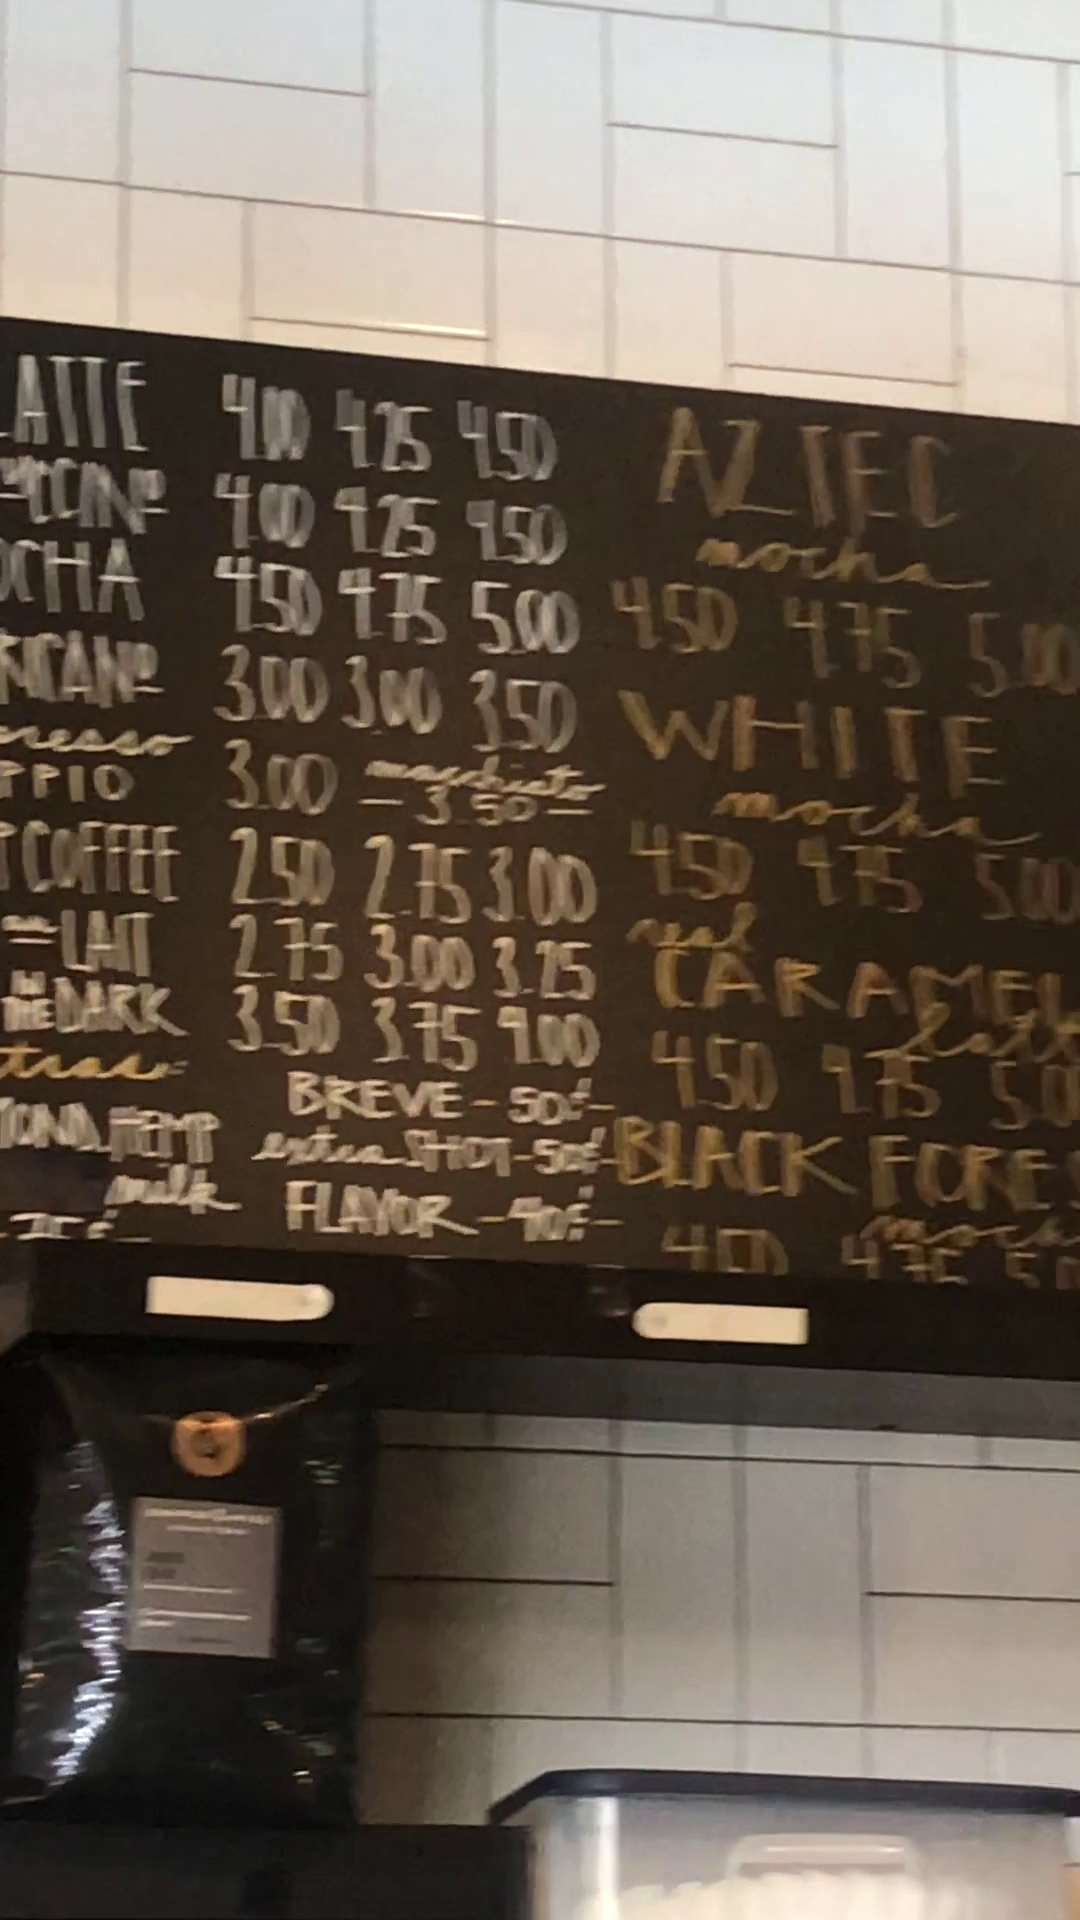 LATTE 4.00 4.25 4.50
CCINO 4.00 4.25 4.50
OCHA 4.50 4.75 5.00
RICANO 3.00 3.00 3.50
presso
PPIO 3.00 macchiato
– 3.50 –
P COFFEE 2.50 2.75 3.00
LAIT 2.75 3.00 3.25
IN THE DARK 3.50 3.75 4.00
xtras
BREVE - 50¢ -
MOND, HEMP extra SHOT - 50¢ -
milk FLAVOR - 40¢ -
AZTEC
mocha
4.50 4.75 5.00
WHITE
mocha
4.50 4.75 5.00
real
CARAMEL
latte
4.50 4.75 5.00
BLACK FORES
mocha
4.50 4.75 5.0